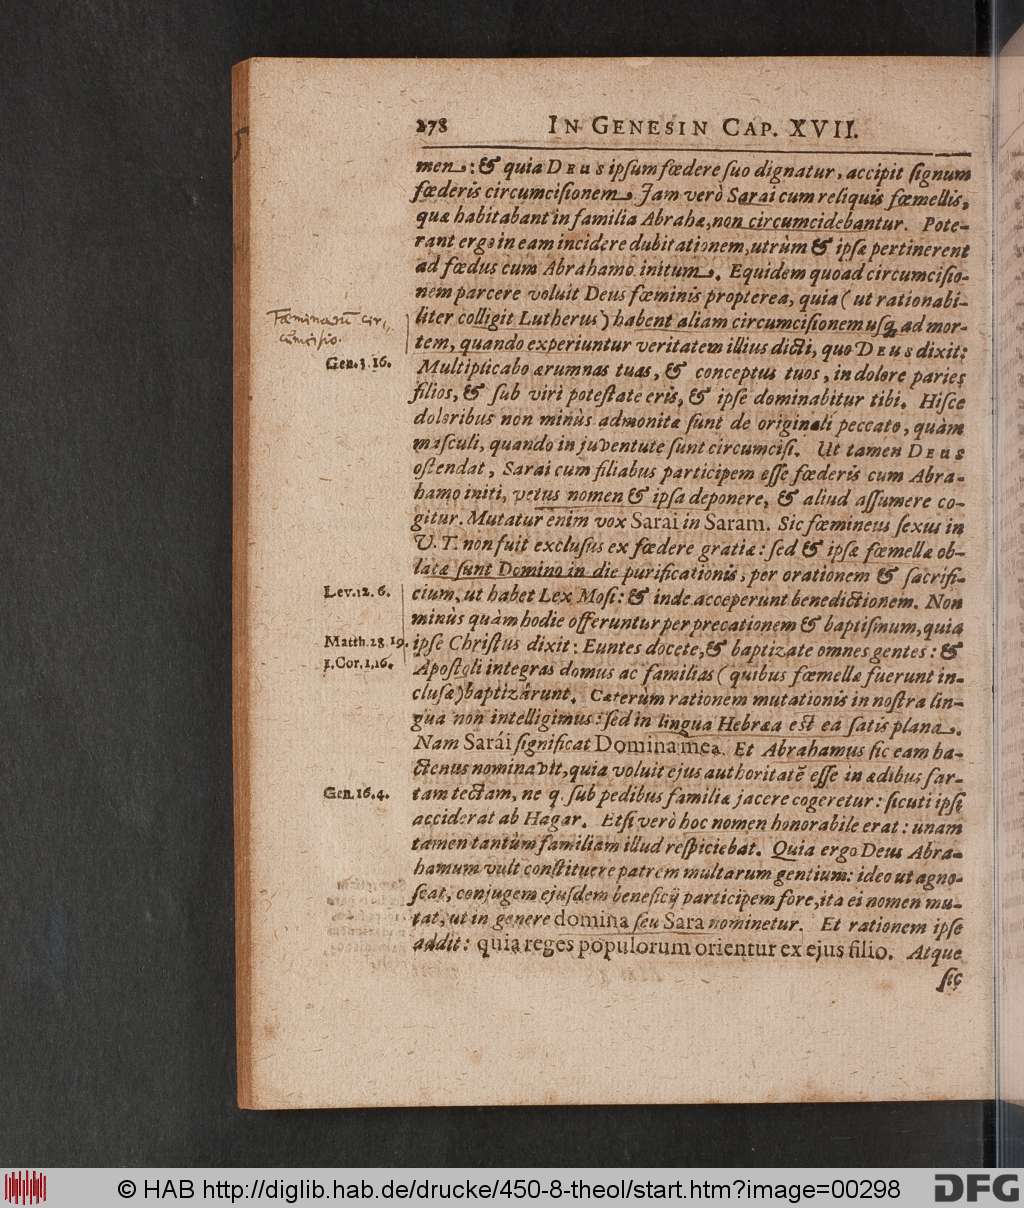 278 IN GENESIN CAP. XVII.
men: & quia DEUS ipsum fœdere suo dignatur, accipit signum
fœderis circumcisionem. Jam verò Sarai cum reliquis fœmellis,
quæ habitabant in familia Abrahæ, non circumcidebantur. Pote-
rant ergo in eam incidere dubitationem, utrùm & ipsæ pertinerent
ad fœdus cum Abrahamo initum. Equidem quoad circumcisio-
nem parcere voluit Deus fœminis propterea, quia (ut rationabi-
Fœminarū cir-
liter colligit Lutherus) habent aliam circumcisionem usq; ad mor-
cūmcisio.
tem, quando experiuntur veritatem illius dicti, quo DEUS dixit:
Gen. 3. 16.
Multiplicabo ærumnas tuas, & conceptus tuos, in dolore paries
filios, & sub viri potestate eris, & ipse dominabitur tibi. Hisce
doloribus non minùs admonitæ sunt de originali peccato, quàm
masculi, quando in juventute sunt circumcisi. Ut tamen DEUS
ostendat, Sarai cum filiabus participem esse fœderis cum Abra-
hamo initi, vetus nomen & ipsa deponere, & aliud assumere co-
gitur. Mutatur enim vox Sarai in Saram. Sic fœmineus sexus in
V. T. non fuit exclusus ex fœdere gratiæ: sed & ipsæ fœmellæ ob-
latæ sunt Domino in die purificationis, per orationem & sacrifi-
Lev. 12. 6.
cium, ut habet Lex Mosi: & inde acceperunt benedictionem. Non
minùs quàm hodie offeruntur per precationem & baptismum, quia
Matth. 28 19.
ipse Christus dixit: Euntes docete, & baptizate omnes gentes: &
1. Cor. 1, 16.
Apostoli integras domus ac familias (quibus fœmellæ fuerunt in-
clusæ) baptizârunt. Cæterùm rationem mutationis in nostra lin-
gua non intelligimus: sed in lingua Hebræa est ea satis plana.
Nam Sarái significat Domina mea. Et Abrahamus sic eam ha-
ctenus nominavit, quia voluit ejus authoritatē esse in ædibus sar-
Gen. 16. 4.
tam tectam, ne q. sub pedibus familiæ jacere cogeretur: sicuti ipsi
acciderat ab Hagar. Etsi verò hoc nomen honorabile erat: unam
tamen tantùm familiam illud respiciebat. Quia ergo Deus Abra-
hamum vult constituere patrem multarum gentium: ideo ut agno-
scat, conjugem ejusdem beneficij participem fore, ita ei nomen mu-
tat, ut in genere domina seu Sara nominetur. Et rationem ipse
addit: quia reges populorum orientur ex ejus filio. Atque
sic
© HAB http://diglib.hab.de/drucke/450-8-theol/start.htm?image=00298
DFG